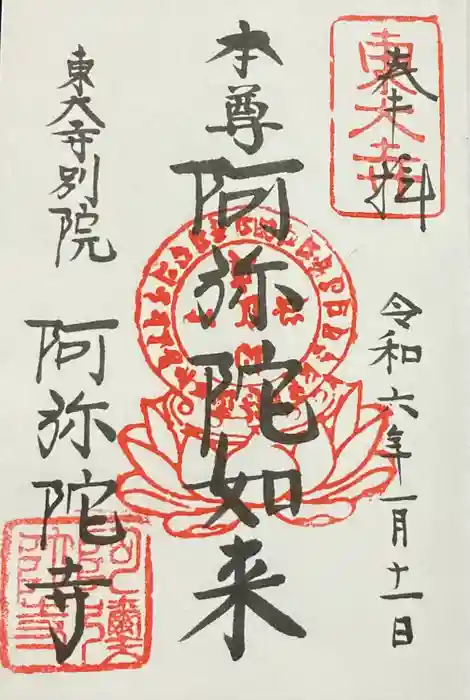 奉拝
東大寺
令和六年一月十一日
本尊
阿弥陀如来
東大寺別院
阿弥陀寺
阿彌陀寺